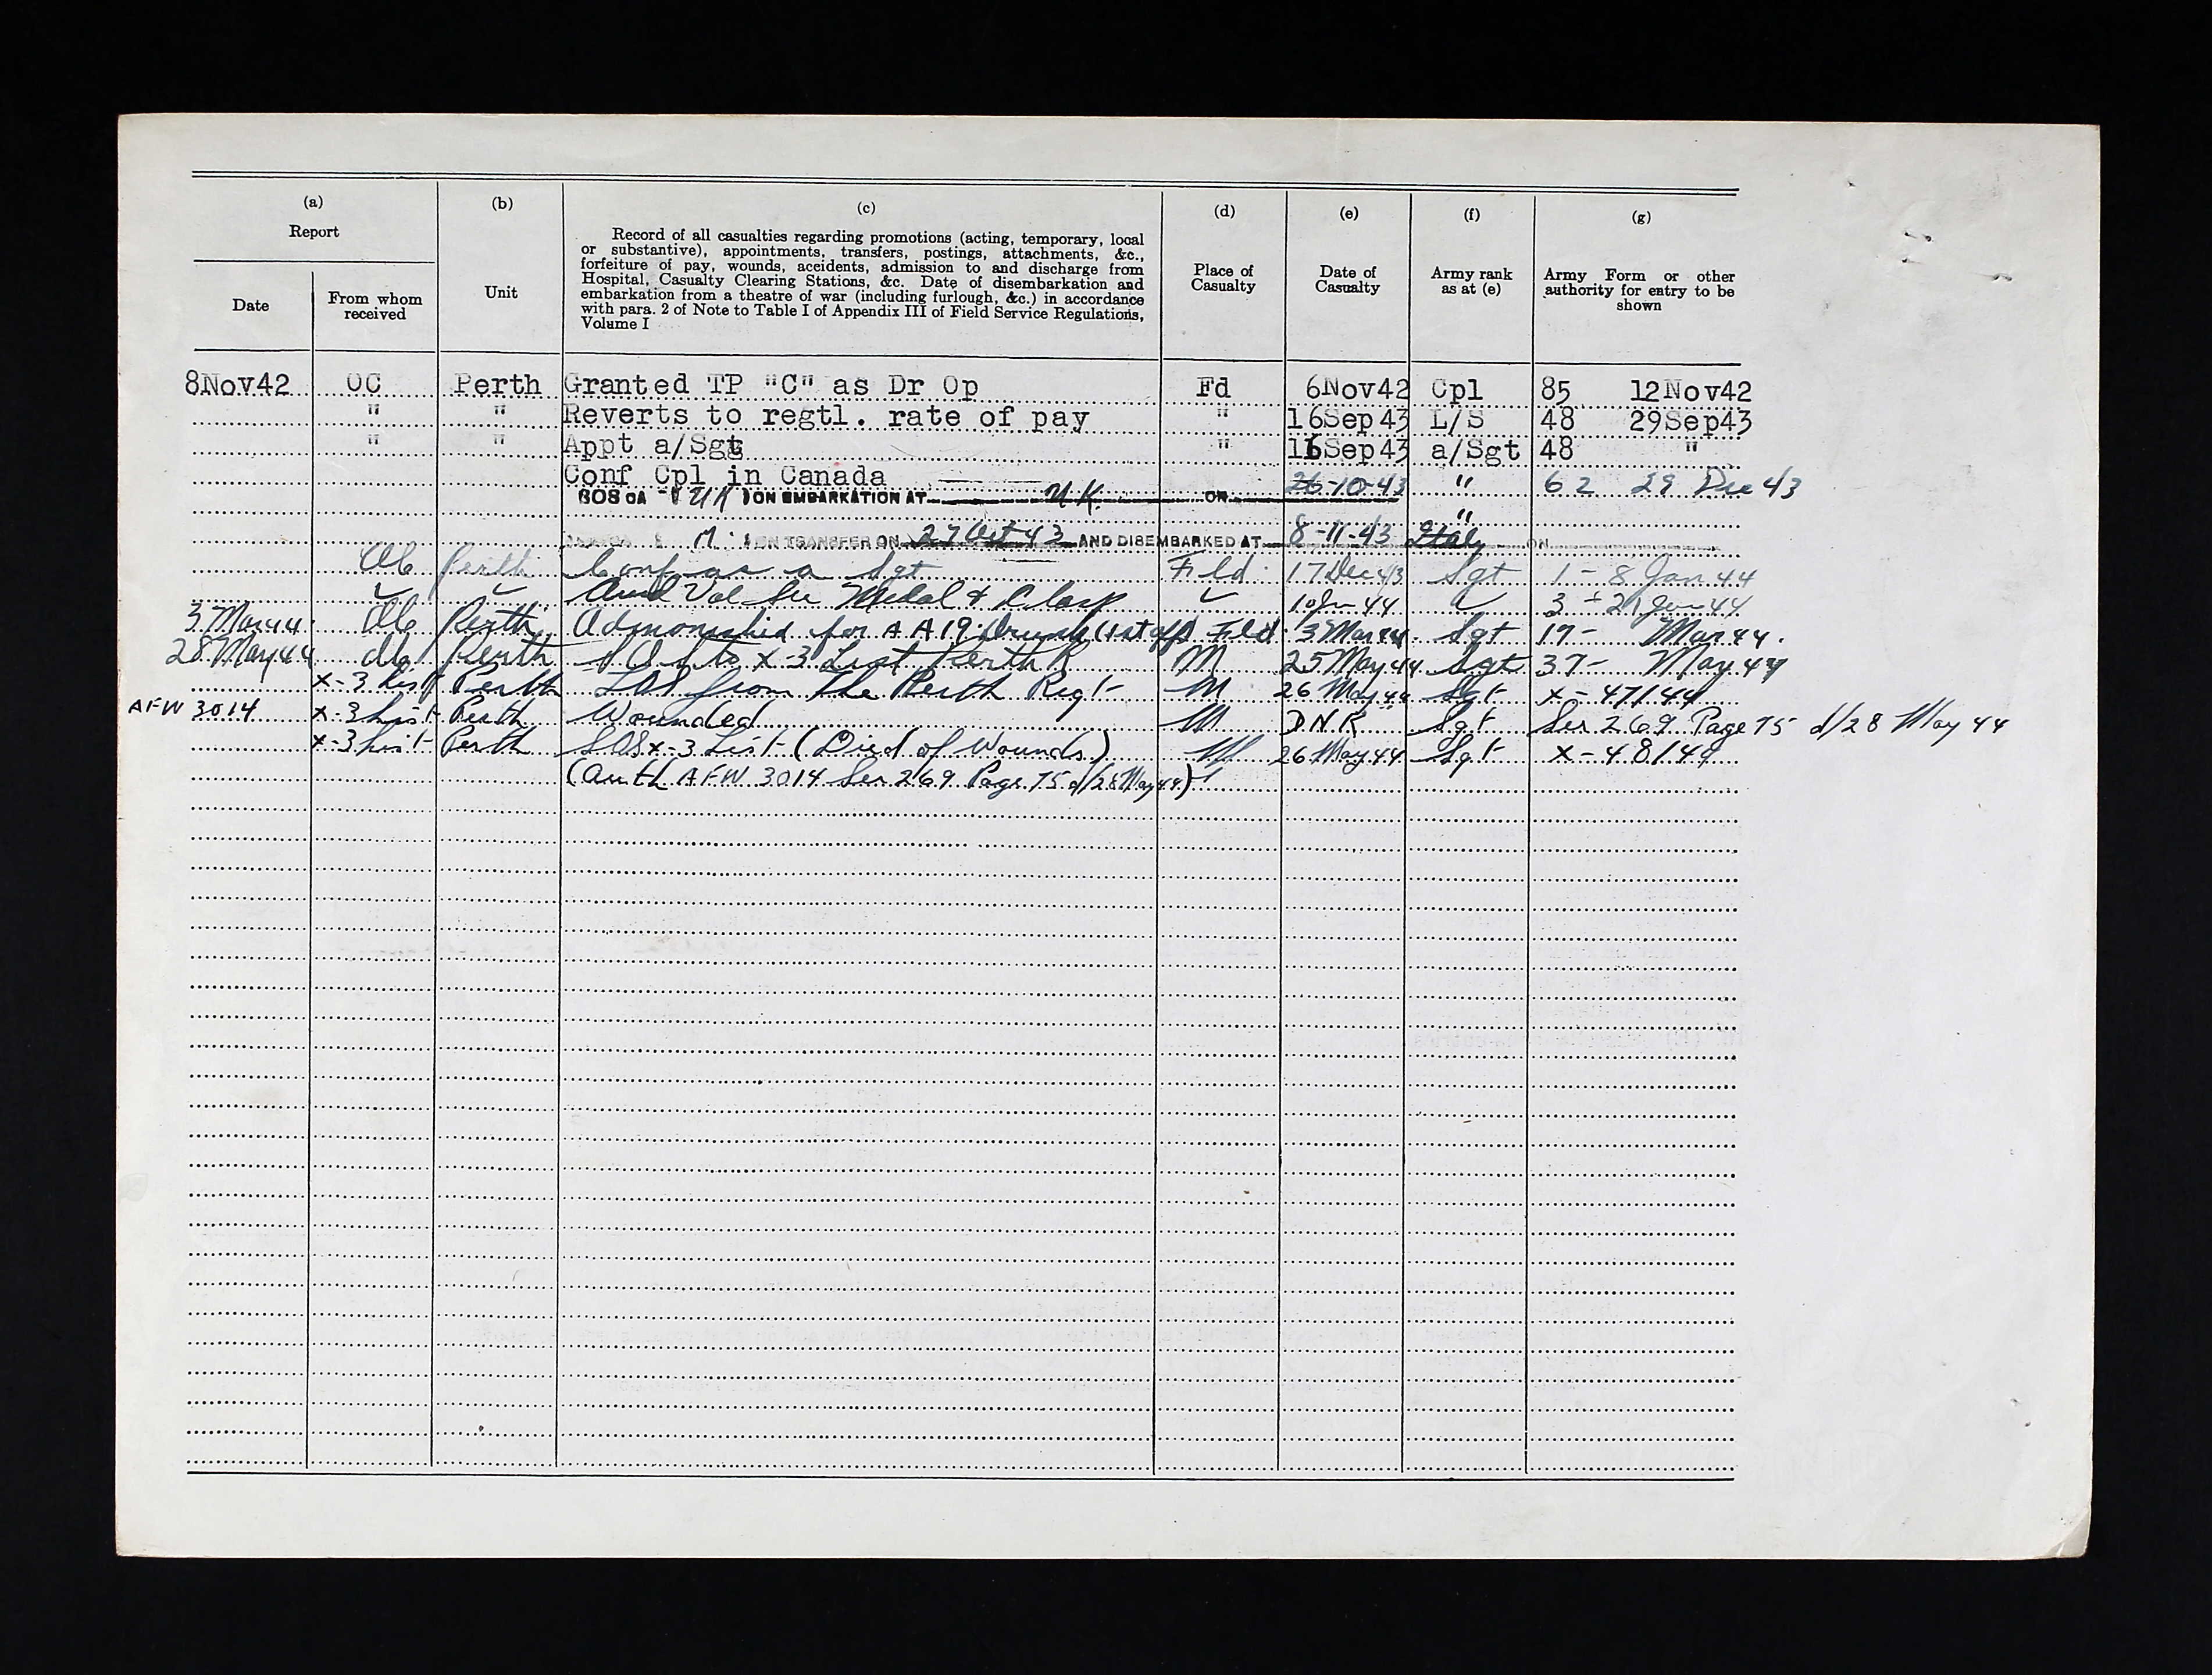 (a) (b) (c) (d) (e) (f) (g)
Report
Record of all casualties regarding promotions (acting, temporary, local
or substantive), appointments, transfers, postings, attachments, &c.,
forfeiture of pay, wounds, accidents, admission to and discharge from
Hospital, Casualty Clearing Stations, &c. Date of disembarkation and
embarkation from a theatre of war (including furlough, &c.) in accordance
with para. 2 of Note to Table I of Appendix III of Field Service Regulations,
Volume I
Date
From whom
received
Unit
Place of
Casualty
Date of
Casualty
Army rank
as at (e)
Army Form or other
authority for entry to be
shown
8Nov42 OC Perth Granted TP "C" as Dr Op Fd 6Nov42 Cpl 85 12Nov42
" " Reverts to regtl. rate of pay " 16Sep43 L/S 48 29Sep43
" " Appt a/Sgt " 16Sep43 a/Sgt 48 "
Conf Cpl in Canada
SOS CA UK ON EMBARKATION AT U.K. ON 26-10-43 " 62 29 Dec 43
M. ON TRANSFER ON 27 Oct 43 AND DISEMBARKED AT 8-11-43 Italy ON "
OC Perth Conf as a Sgt Fld 17 Dec 43 Sgt 1 - 8 Jan 44
Awd Vol Ser Medal & Clasp 10 Jan 44 3 - 21 Jan 44
3 Mar 44 OC Perth Admonished for AA 19 Drunk (1st off) Fld 3 Mar 44 Sgt 17 - Mar 44.
28 May 44 OC Perth SOS to X-3 List Perth R M 25 May 44 Sgt 37 - May 44
X-3 List Perth TOS from The Perth Regt M 26 May 44 Sgt X-47/44
AFW 3014 X-3 List Perth Wounded M DNR Sgt Ser 269 Page 75 d/28 May 44
X-3 List Perth SOS X-3 List (Died of Wounds) M 26 May 44 Sgt X-48/44
(Auth AFW 3014 Ser 269 Page 75 d/28 May 44)